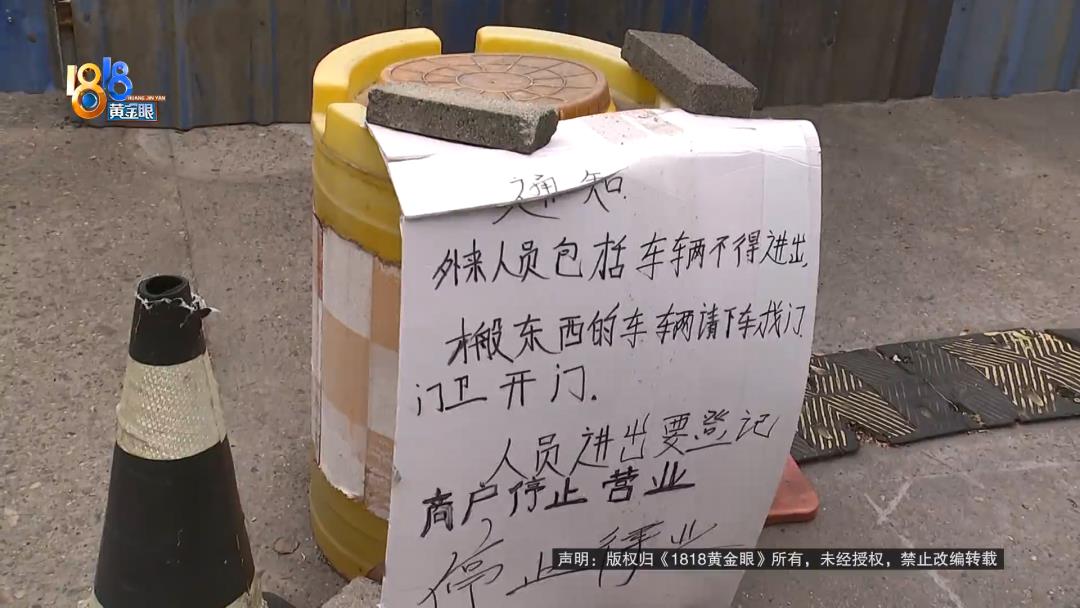 1818
HUANG JIN YAN
黄金眼
通知
外来人员包括车车辆不得进出,
搬东西的车车辆请下车找门
门卫开门.
人员进出要登记
商户停止营业
停止
业
声明：版权归《1818黄金眼》所有，未经授权，禁止改编转载